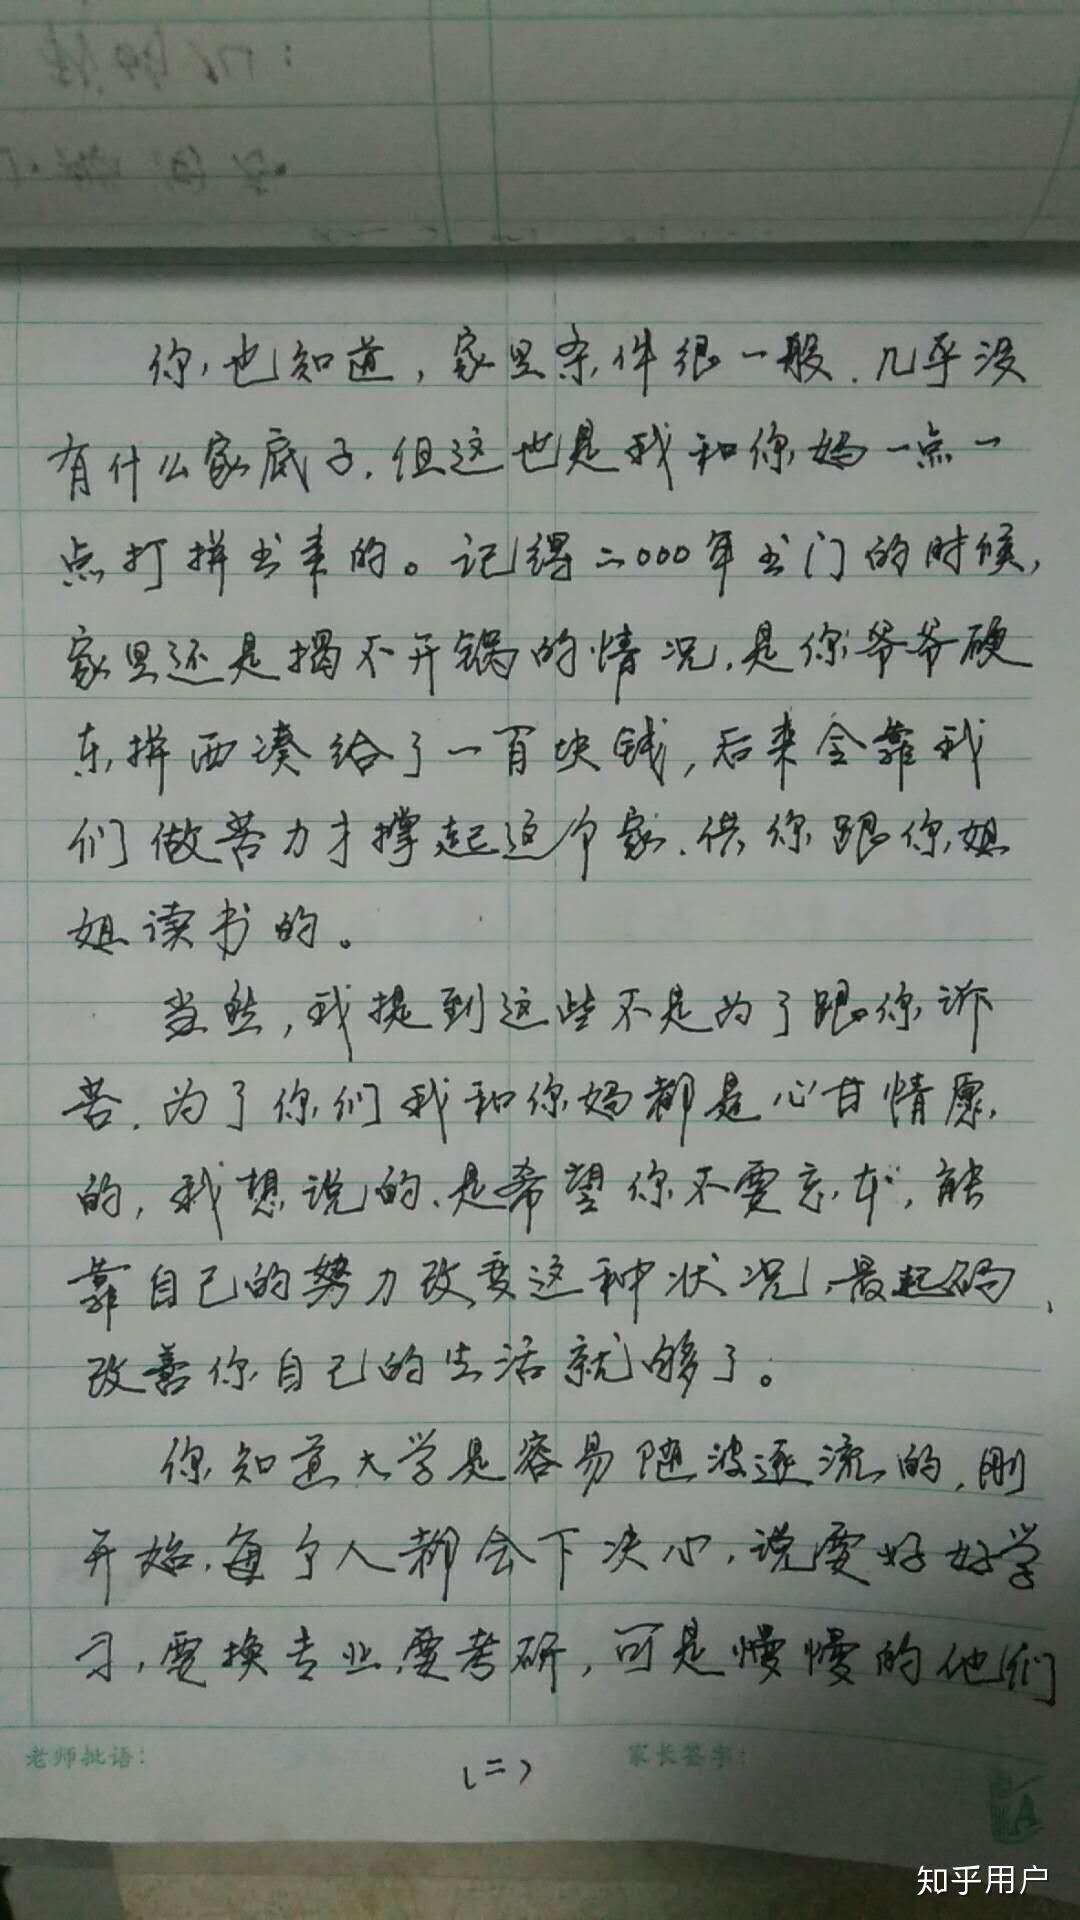 你也知道，家里条件很一般.几乎没
有什么家底子.但这也是我和你妈一点一
点打拼出来的。记得二000年出门的时候，
家里还是揭不开锅的情况.是你爷爷硬
东拼西凑给了一百块钱，后来全靠我
们做苦力才撑起这个家.供你跟你姐
姐读书的。
当然，我提到这些不是为了跟你诉
苦.为了你们我和你妈都是心甘情愿
的，我想说的.是希望你不要忘本，能
靠自己的努力改变这种状况，最起码、
改善你自己的生活就够了。
你知道大学是容易随波逐流的，刚
开始.每个人都会下决心.说要好好学
习，要换专业.要考研，可是慢慢的他们
老师批语：
（二）
家长签字：
知乎用户